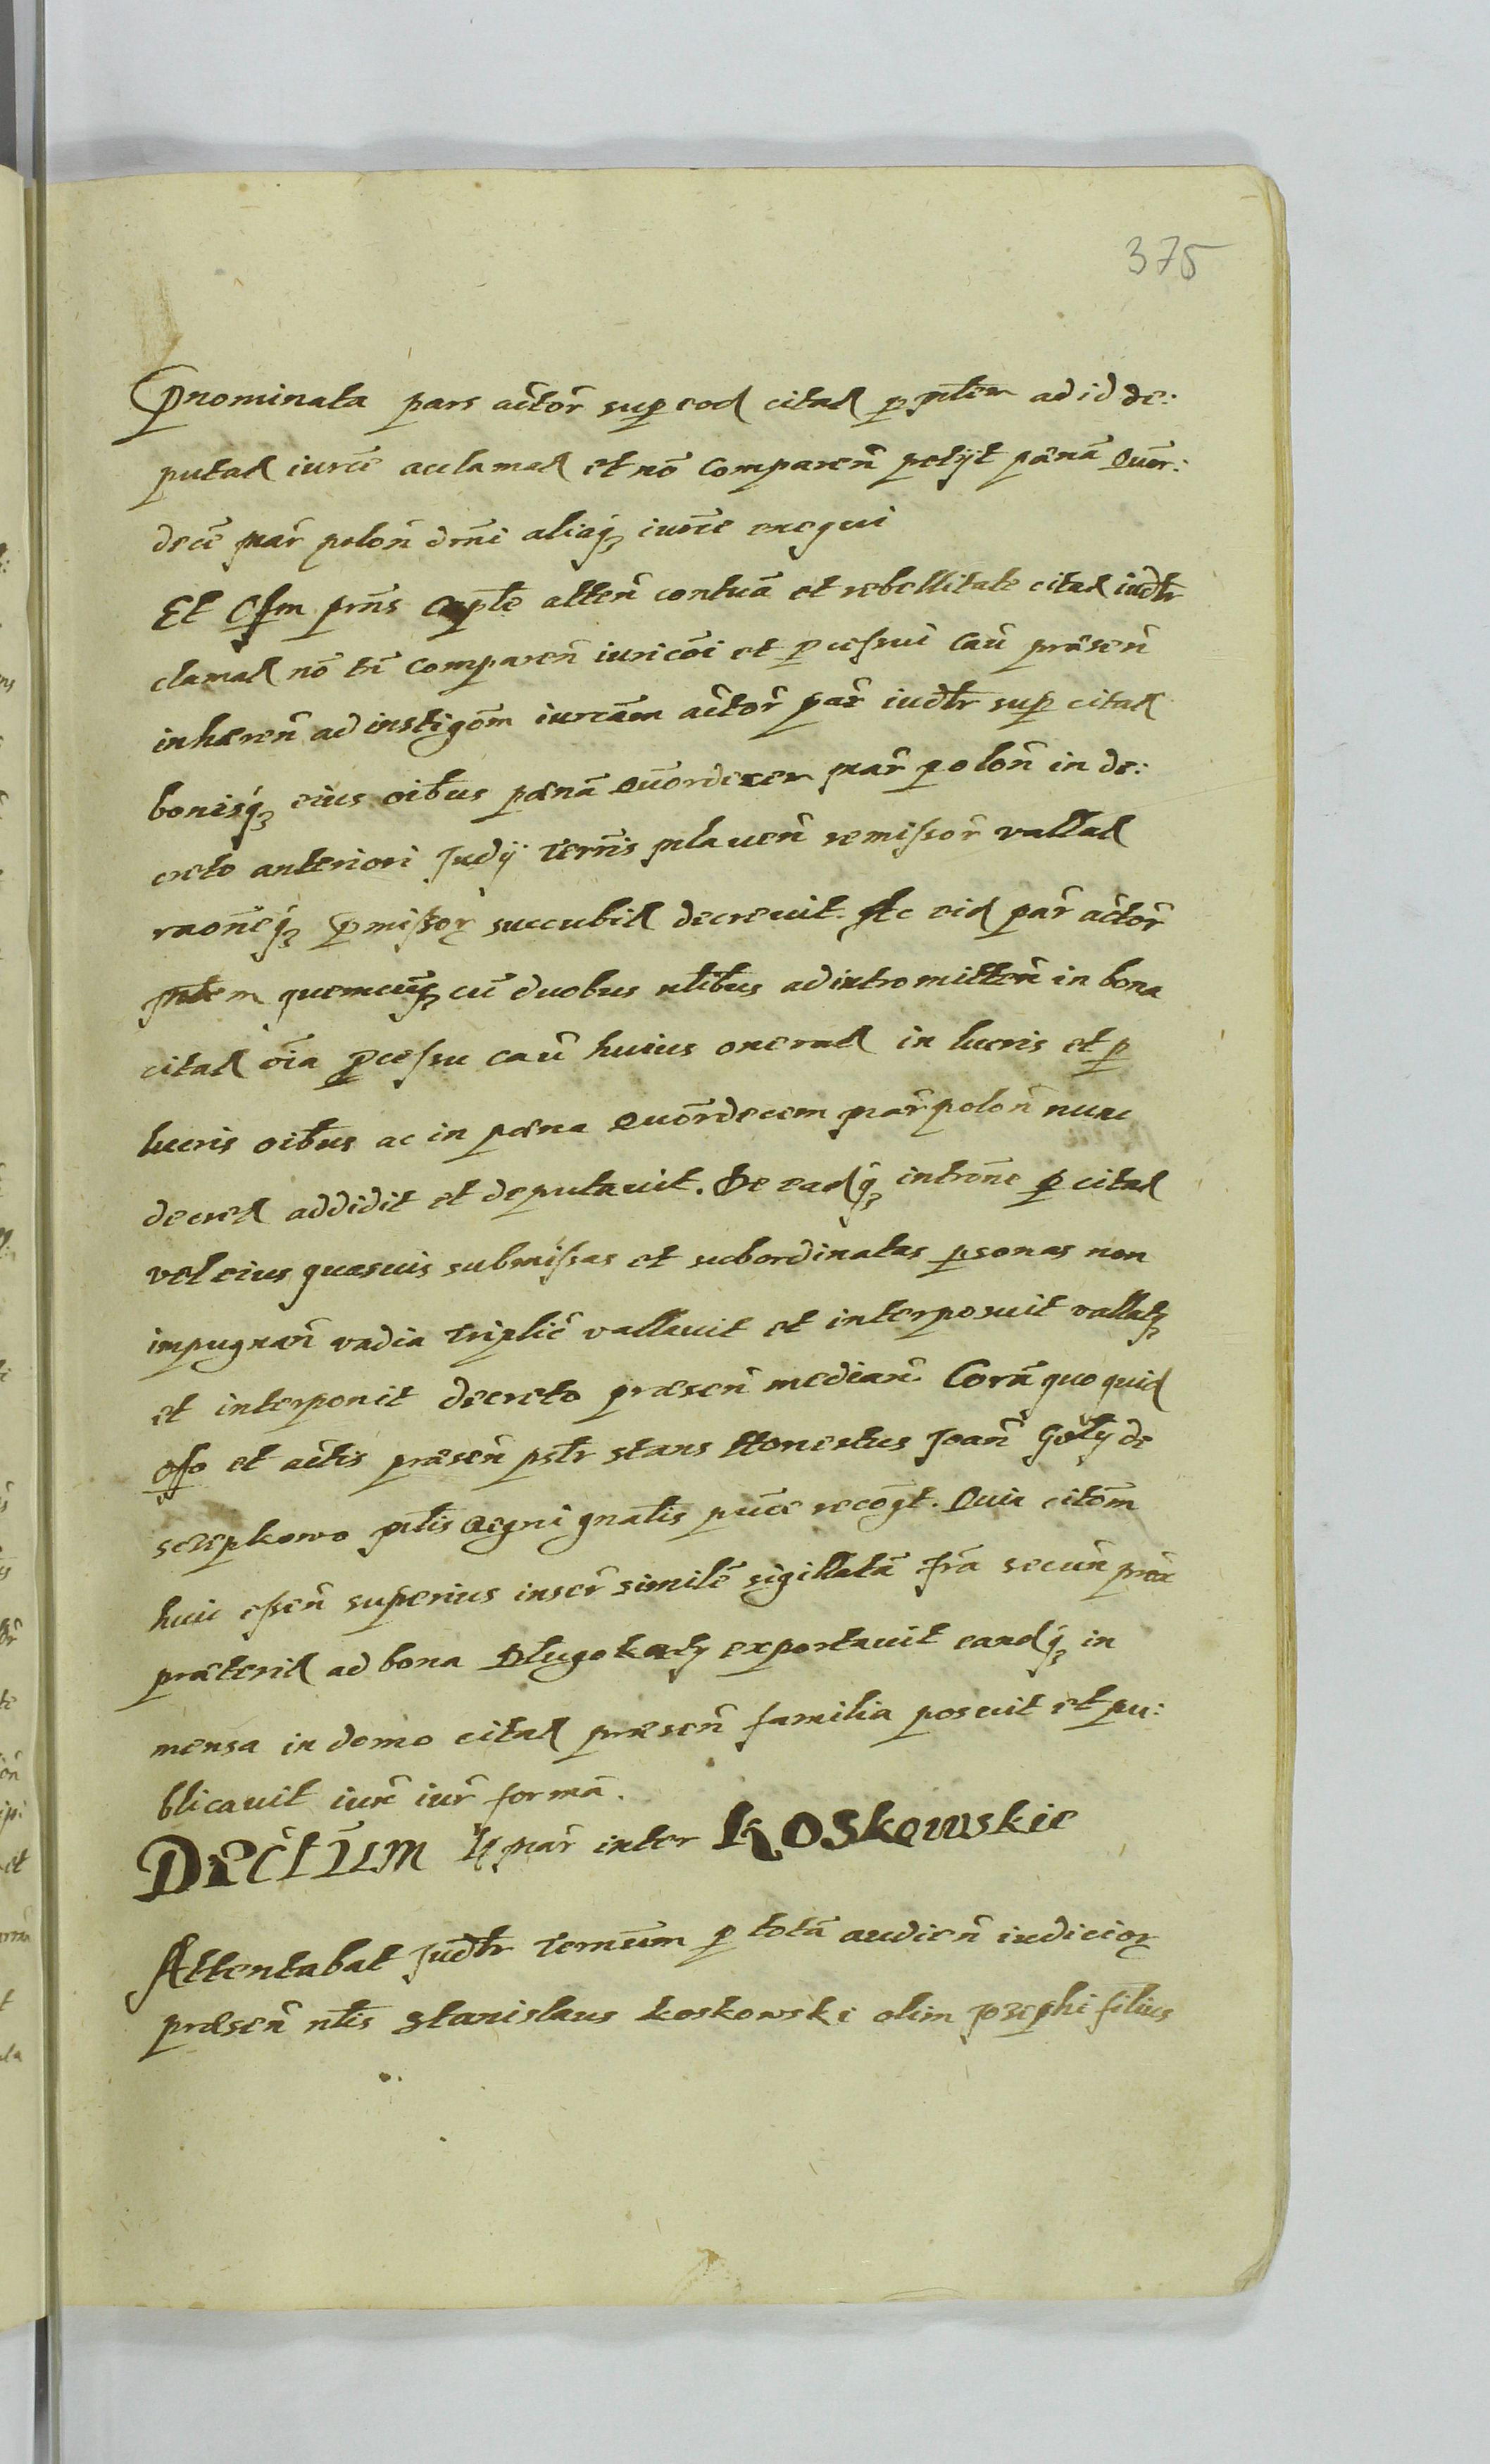 375
Pnominata pars actor sup eod citad p ptem ad id de:
putad iurce acclamad et nō comparen petÿt pœnā Quor:
decē mar polon dmī aliaq iurce exequi
Et Offm pms capte atten contuā et rebellitate citad iudtr
clamad nō tn comparen iuricōi et pcessui cau præsen
inhæren ad instigōm iurcām actor par iudtr sup citad
bonisq eius oībus pœnā Quordecem mar polon in de:
creto anteriori Judÿ Terris mlauen remissor vallad
raōneq pmissor succubit decrevit. Ac eid par actor
mtem quemcunq cū duobus ntibus ad intromitten in bona
citad oīa pcessu cau huius onerad in lucris et p
lucris oībus ac in pœna Quordecem mar polon nunc
decred addidit et deputavit. De eadq introne p citad
vel eius quasuis submissas et subordinatas psonas non
impugnan vadia triplic vallavit et interposuit vallatq
et interponit decreto præsen median. Corā quo quid
offo et actis præsen pstr stans Honestus Joan Goły de
Szczepkowo mtis Regni gnatis puce recogt. Quia citōm
huic essen superius inser similē sigillatā frā secun prox
præterid ad bona Długokąty exportavit eandq in
mensa in domo citad præsen familia posuit et pu:
blicavit iux iur formā.
Decretum 14 mar inter Koskowskie
Attentabat Judtr Terreum p totā audien iudicior
præsen ntis Stanislaus Koskowski olim Josephi filius